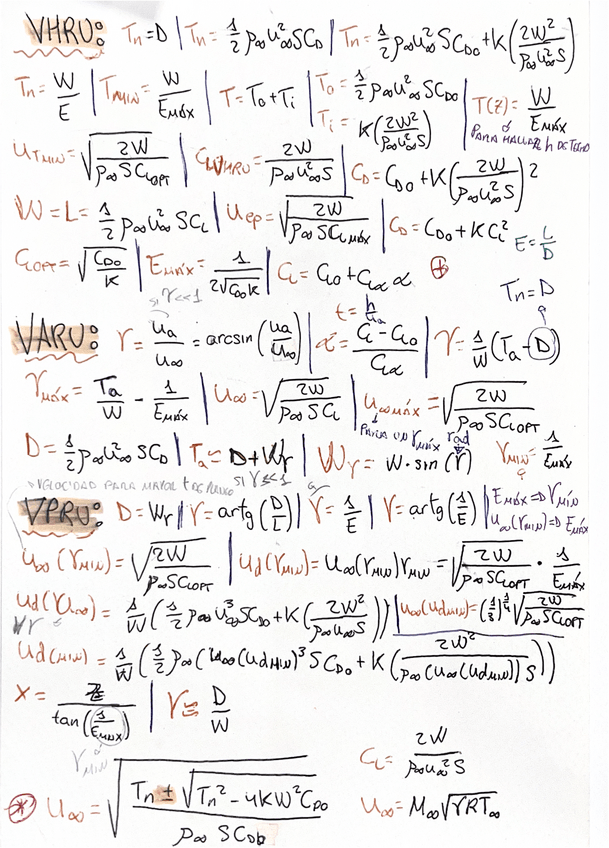 VHRU: Tn=D | Tn= 1/2 ρ∞u∞²SCD | Tn= 1/2 ρ∞u∞²SCD0+K(2W²/ρ∞u∞²S)
Tn= W/E | TMIN= W/EMÁX | T=T0+Ti | T0= 1/2 ρ∞u∞²SCD0 | T(z)= W/EMÁX
Ti= K(2W²/ρ∞u∞²S)
PARA HALLAR h DE TECHO
uTMIN=√(2W/ρ∞SCLOPT) | CLVHRU= 2W/ρ∞u∞²S | CD=CD0+K(2W/ρ∞u∞²S)²
W=L= 1/2 ρ∞u∞²SCL | uep=√(2W/ρ∞SCLMÁX) | CD=CD0+KCL² E= L/D
CLOPT=√(CD0/K) | EMÁX= 1/2√(CD0K) | CL=CL0+CLα α ⊕
SI γ<<1 t= h/ua Tn=D
VARU: γ= ua/u∞ = arcsin(ua/u∞) | α= CL-CL0/CLα | γ= 1/W(Ta-D)
γMÁX= Ta/W - 1/EMÁX | u∞=√(2W/ρ∞SCL) | u∞MÁX=√(2W/ρ∞SCLOPT)
PARA UN γMÁX rad
D= 1/2 ρ∞u∞²SCD | Ta= D+Wγ | Wγ= W·sin(γ) γMIN= 1/EMÁX
VELOCIDAD PARA MAYOR t DE PLANEO SI γ<<1
VPRU: D=Wγ | γ=artg(D/L) | γ= 1/E | γ=artg(1/E) | EMÁX=D γMÍN
u∞(γMIN)=D EMÁX
u∞(γMIN)=√(2W/ρ∞SCLOPT) | ud(γMIN)= u∞(γMIN)γMIN=√(2W/ρ∞SCLOPT) · 1/EMÁX
ud(γu∞)= 1/W(1/2 ρ∞u∞³SCD0+K(2W²/ρ∞u∞S)) | u∞(udMIN)=(1/3)^1/4 √(2W/ρ∞SCLOPT)
ud(MIN)= 1/W(1/2 ρ∞(u∞(udMIN)³SCD0+K(2W²/ρ∞(u∞(udMIN))S))
X= z/tan(1/EMÁX) | γ≅ D/W
γMIN
CL= 2W/ρ∞u∞²S
⊛ u∞=√(Tn±√(Tn²-4KW²CD0)/ρ∞SCD0) u∞=M∞√(γRT∞)